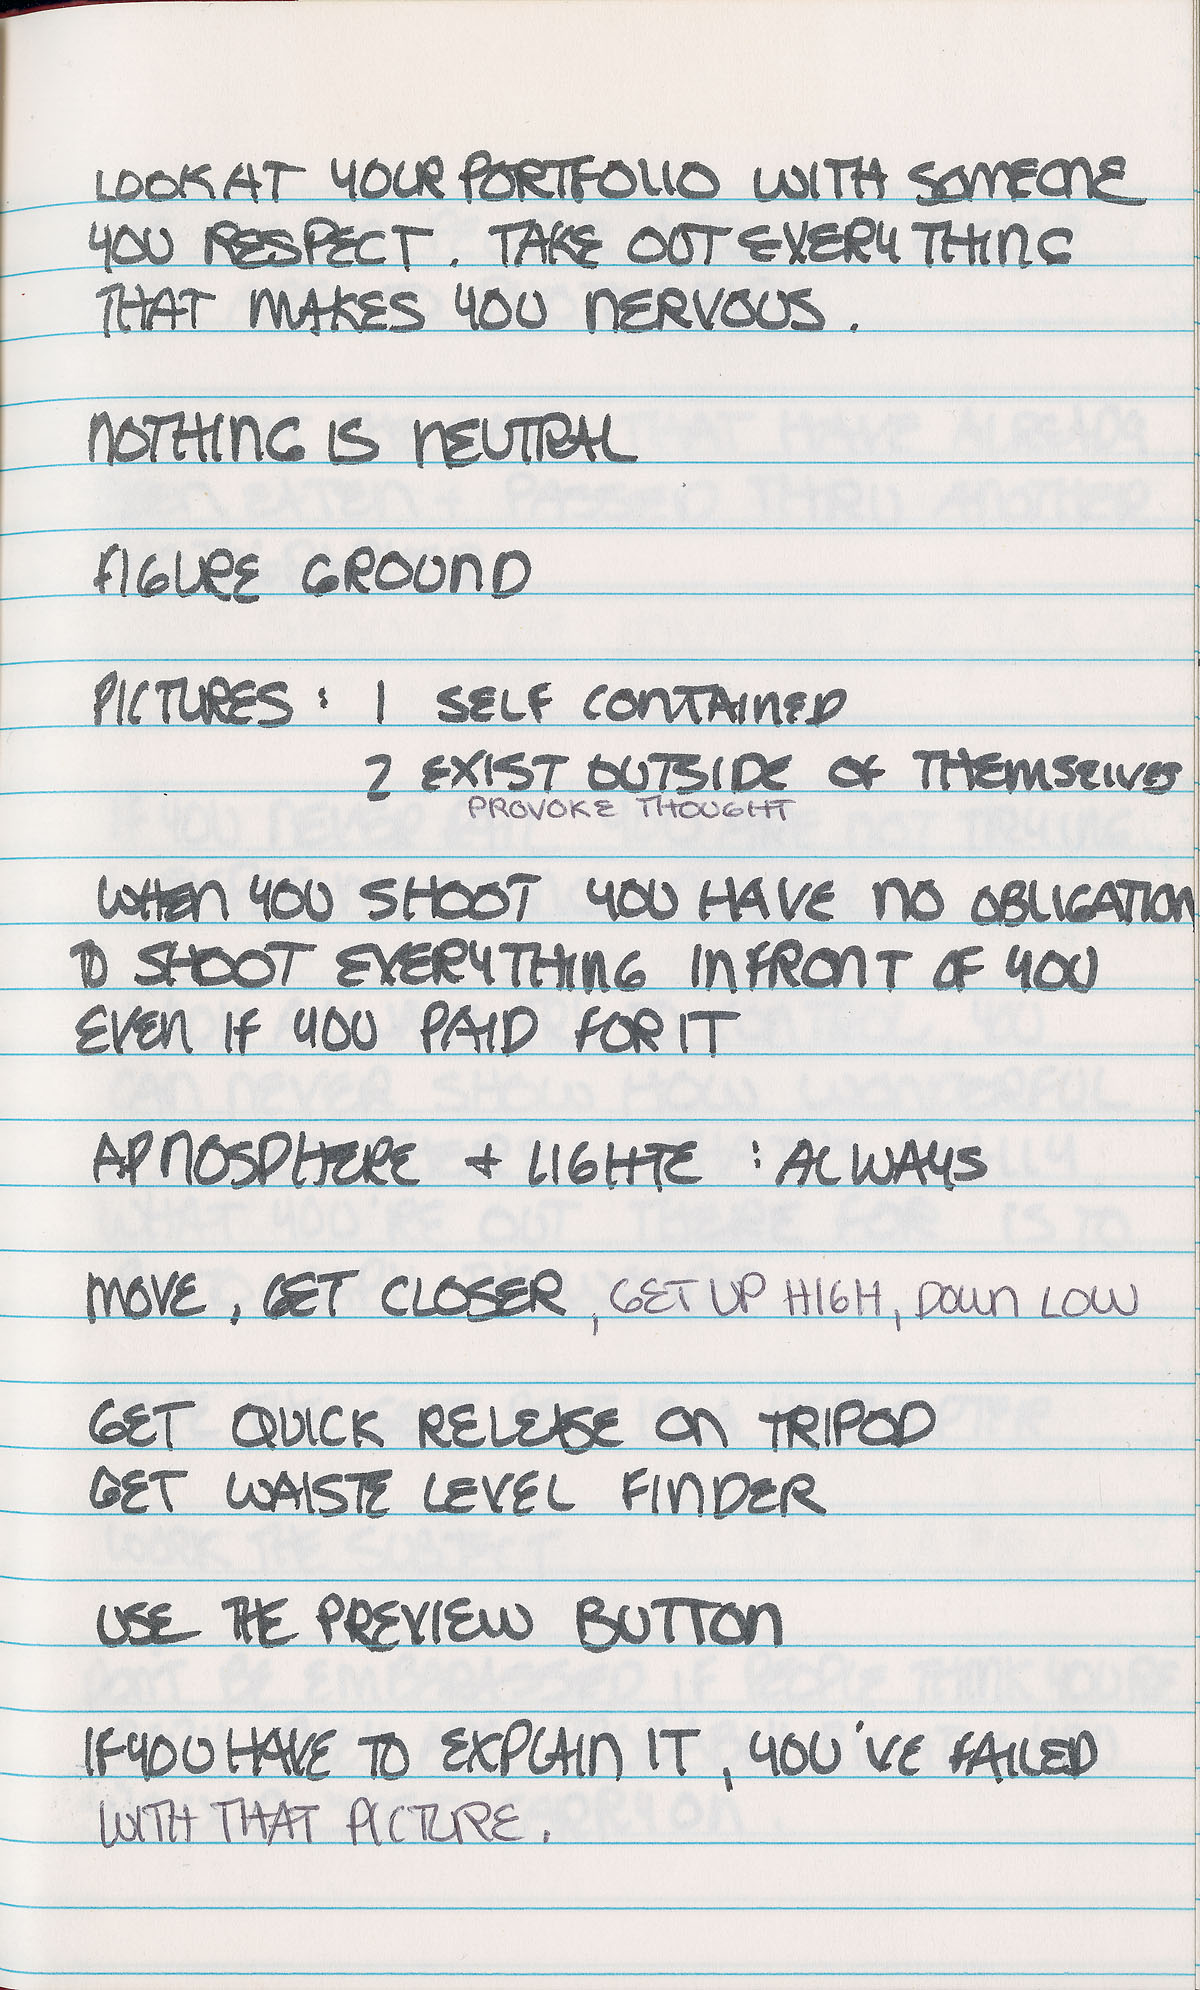 LOOK AT YOUR PORTFOLIO WITH SOMEONE
YOU RESPECT. TAKE OUT EVERYTHING
THAT MAKES YOU NERVOUS.
NOTHING IS NEUTRAL
FIGURE GROUND
PICTURES: 1 SELF CONTAINED
2 EXIST OUTSIDE OF THEMSELVES
PROVOKE THOUGHT
WHEN YOU SHOOT YOU HAVE NO OBLIGATION
TO SHOOT EVERYTHING IN FRONT OF YOU
EVEN IF YOU PAID FOR IT
ATMOSPHERE + LIGHTE : ALWAYS
MOVE, GET CLOSER, GET UP HIGH, DOWN LOW
GET QUICK RELEASE ON TRIPOD
GET WAISTE LEVEL FINDER
USE THE PREVIEW BUTTON
IF YOU HAVE TO EXPLAIN IT, YOU'VE FAILED
WITH THAT PICTURE.